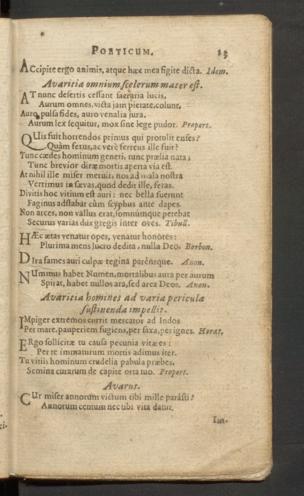 PORTICUM. 23
ACcipite ergo animis, atque hæc mea figite dicta. Idem.
Avaritia omnium scelerum mater est.
AT nunc desertis cessant sacraria lucis,
Aurum omnes, victa jam pietate, colunt.
Auro pulsa fides, auro venalia jura.
Aurum lex sequitur, mox sine lege pudor. Propert.
QUis fuit horrendos primus qui protulit enses?
Quàm ferus, ac verè ferreus ille fuit?
Tunc cædes hominum generi, nunc prælia nata;
Tunc brevior diræ mortis aperta via est.
At nihil ille miser meruit: nos ad mala nostra
Vertimus in sævas, quod dedit ille, feras.
Divitis hoc vitium est auri: nec bella fuerunt
Faginus adstabat cùm scyphus ante dapes.
Non arces, non vallus erat, somnumque petebat
Securus varias dux gregis inter oves. Tibull.
HÆc ætas venatur opes, venatur honores:
Plurima mens lucro dedita, nulla Deo. Borbon.
DIra fames auri culpæ tegina parénsque. Anon.
NUmmus habet Numen, mortalibus aura per aurum
Spirat, habet nullos ara, sed arca Deos. Anon.
Avaritia homines ad varia pericula
sustinenda impellit.
IMpiger extremos currit mercator ad Indos
Per mare, pauperiem fugiens, per saxa, per ignes. Horat.
ERgo sollicitæ tu causa pecunia vitæ es:
Per te immaturum mortis adimus iter.
Tu vitiis hominum crudelia pabula præbes,
Semina curarum de capite orta tuo. Propert.
Avarus.
CUr miser annorum victum tibi mille parâsti?
Annorum centum nec tibi vita datur.